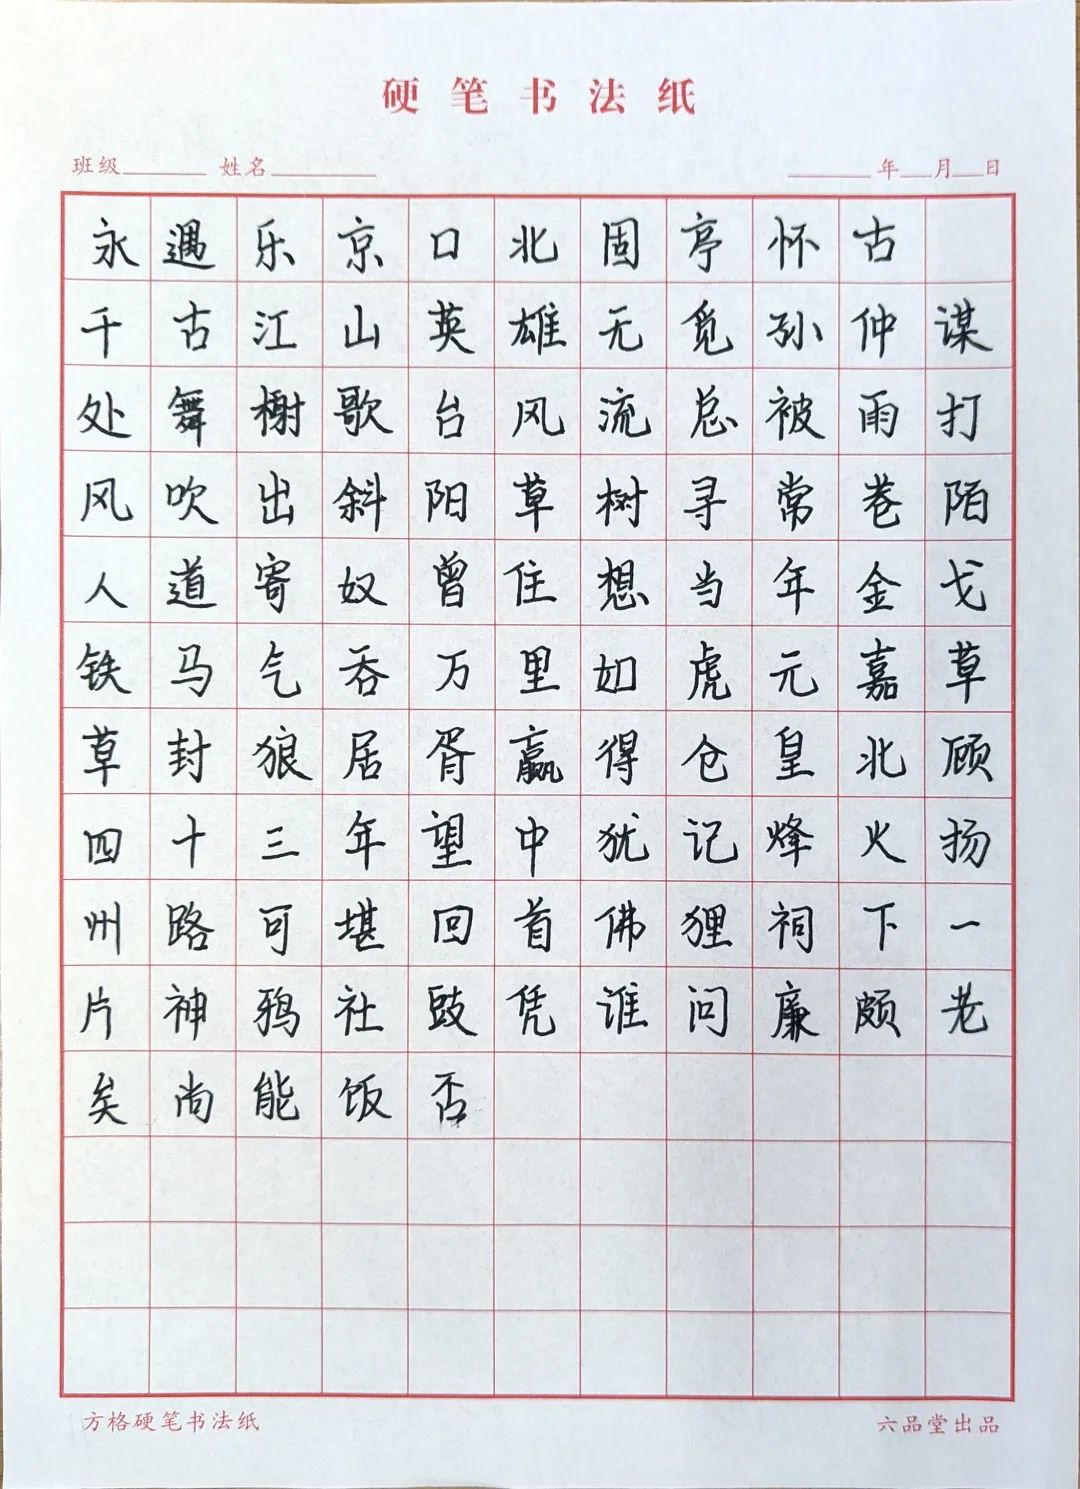 硬笔书法纸
班级 姓名 年 月 日
永遇乐京口北固亭怀古
千古江山英雄无觅孙仲谋
处舞榭歌台风流总被雨打
风吹出斜阳草树寻常巷陌
人道寄奴曾住想当年金戈
铁马气吞万里如虎元嘉草
草封狼居胥赢得仓皇北顾
四十三年望中犹记烽火扬
州路可堪回首佛狸祠下一
片神鸦社鼓凭谁问廉颇老
矣尚能饭否
方格硬笔书法纸 六品堂出品